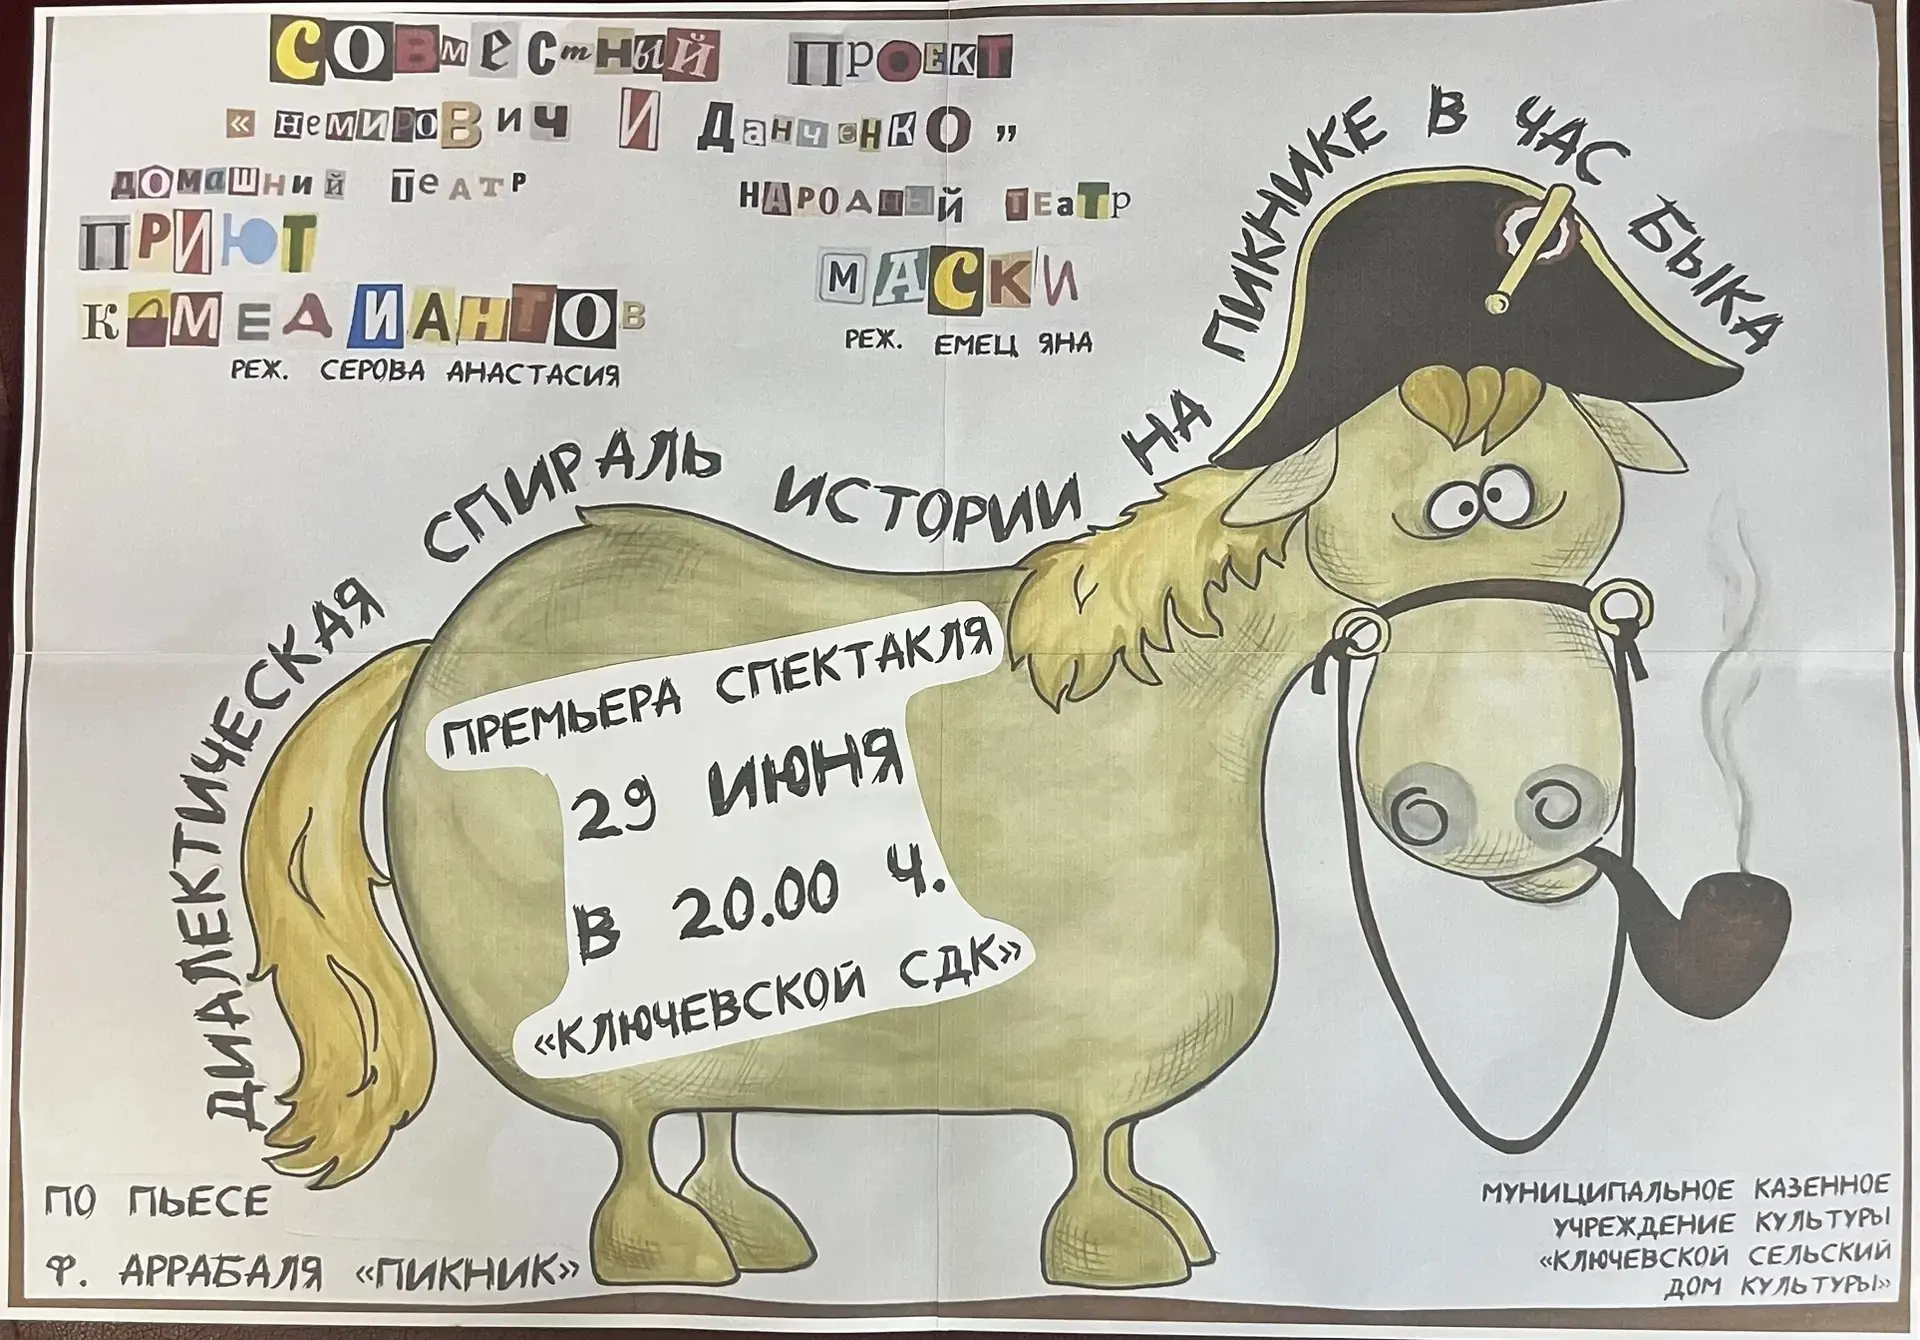 СОВМЕСТНЫЙ ПРОЕКТ
«НЕМИРОВИЧ И ДАНЧЕНКО»
ДОМАШНИЙ ТЕАТР
ПРИЮТ
КОМЕДИАНТОВ
РЕЖ. СЕРОВА АНАСТАСИЯ
НАРОДНЫЙ ТЕАТР
МАСКИ
РЕЖ. ЕМЕЦ ЯНА
ДИАЛЕКТИЧЕСКАЯ СПИРАЛЬ ИСТОРИИ НА ПИКНИКЕ В ЧАС БЫКА
ПРЕМЬЕРА СПЕКТАКЛЯ
29 ИЮНЯ
В 20.00 Ч.
«КЛЮЧЕВСКОЙ СДК»
ПО ПЬЕСЕ
Ф. АРРАБАЛЯ «ПИКНИК»
МУНИЦИПАЛЬНОЕ КАЗЕННОЕ
УЧРЕЖДЕНИЕ КУЛЬТУРЫ
«КЛЮЧЕВСКОЙ СЕЛЬСКИЙ
ДОМ КУЛЬТУРЫ»